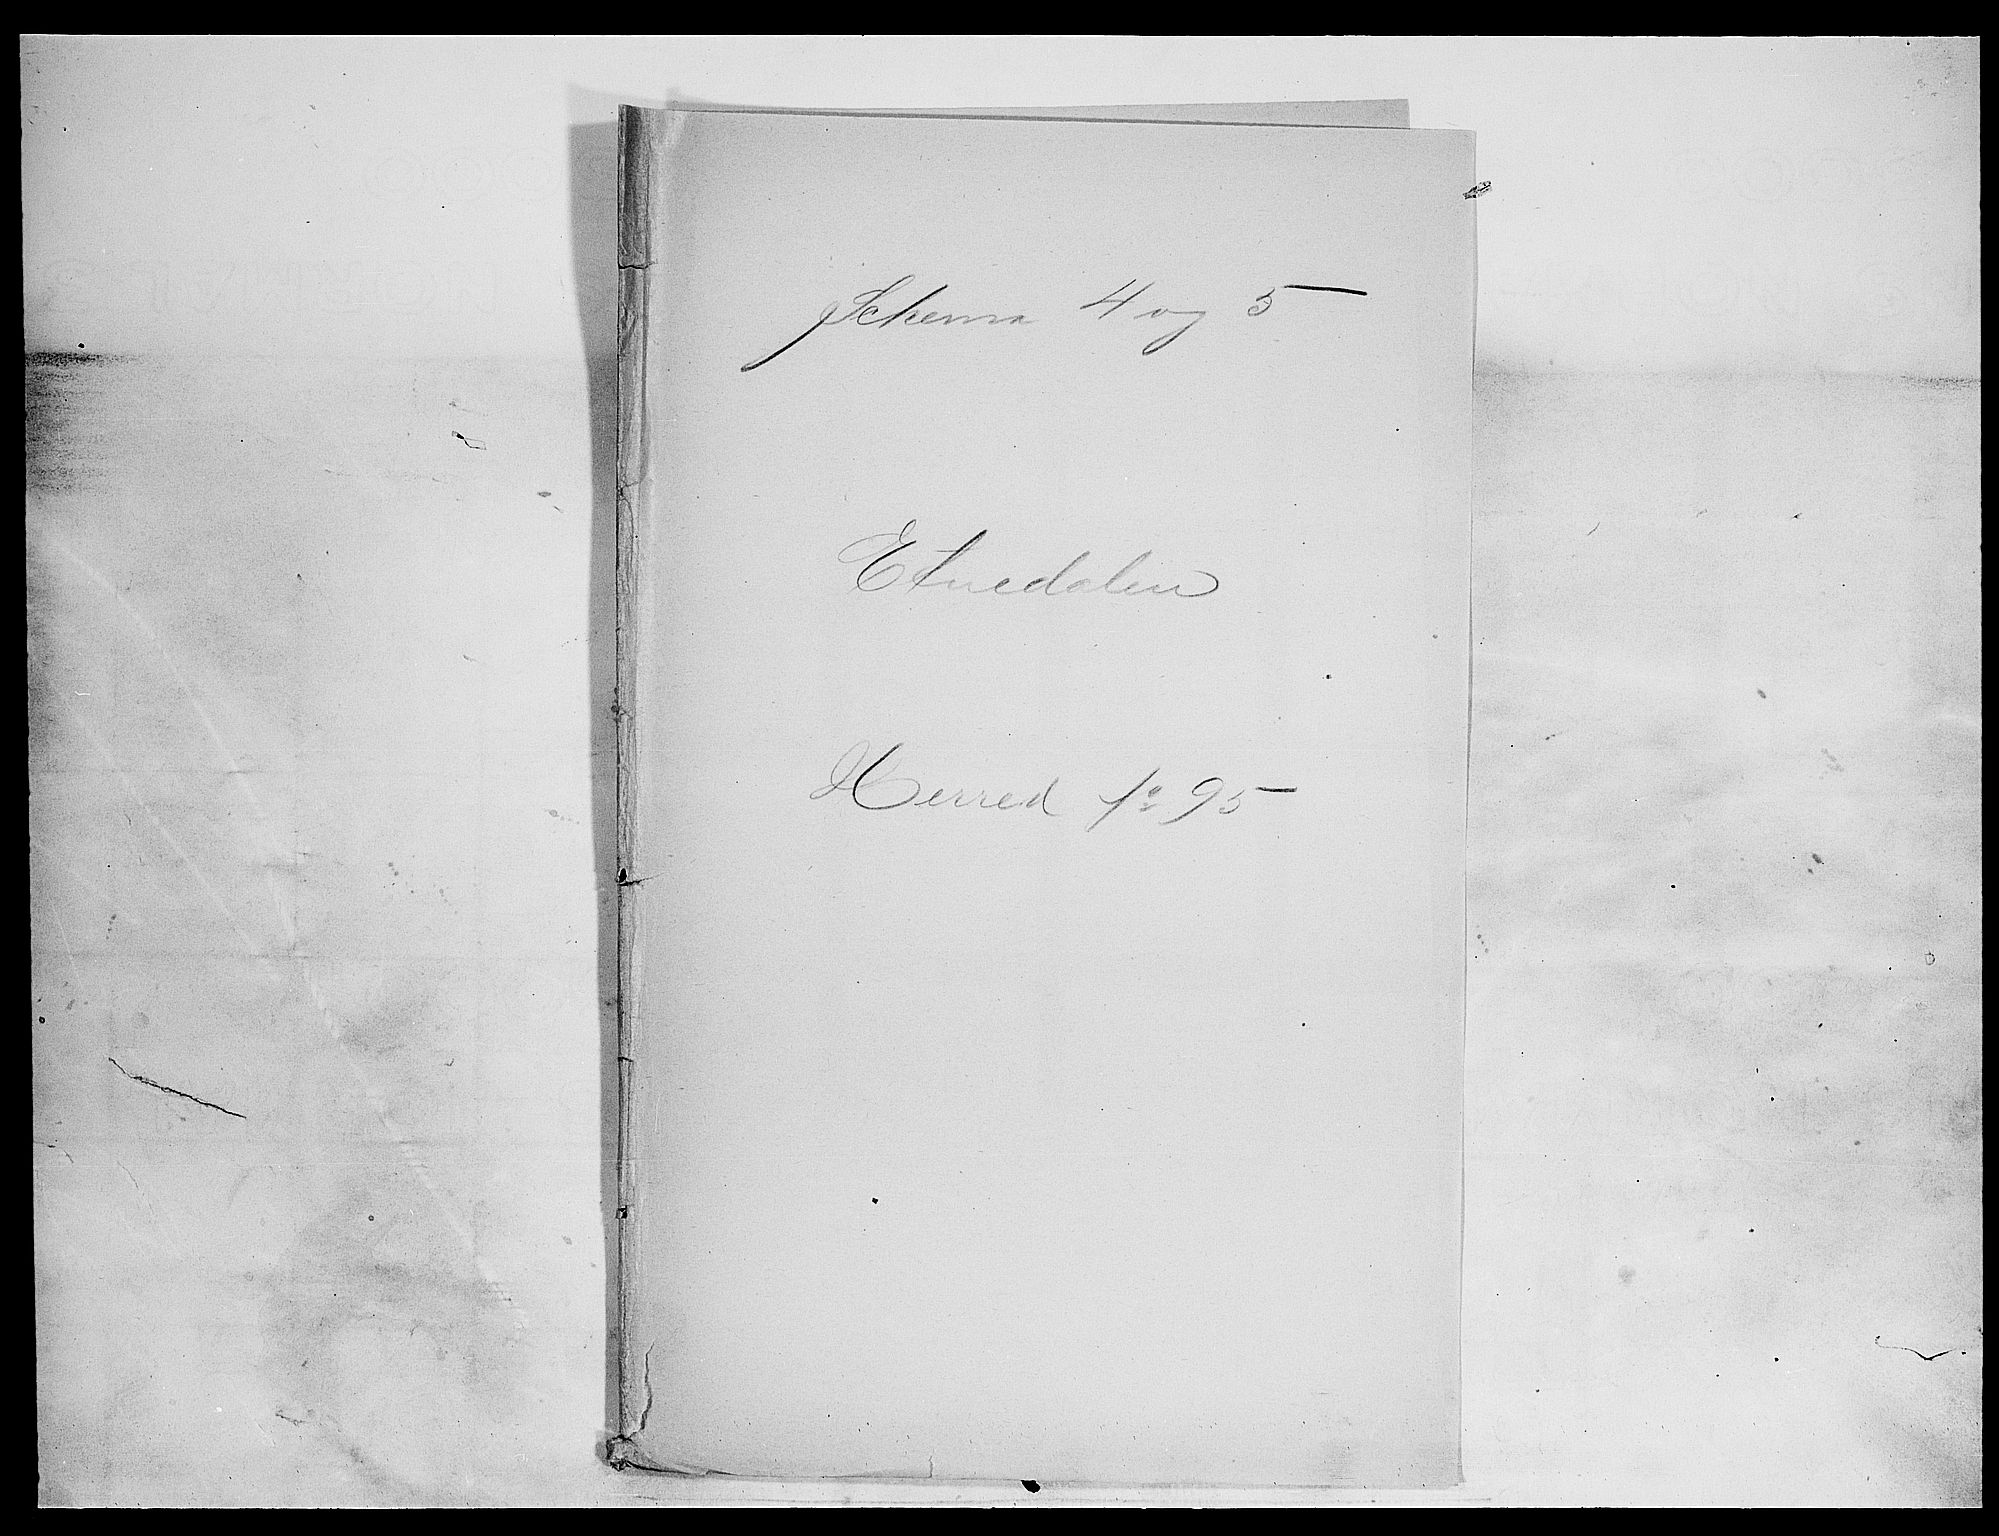 Schema 4 og 5
Etnedalen
Herred № 95